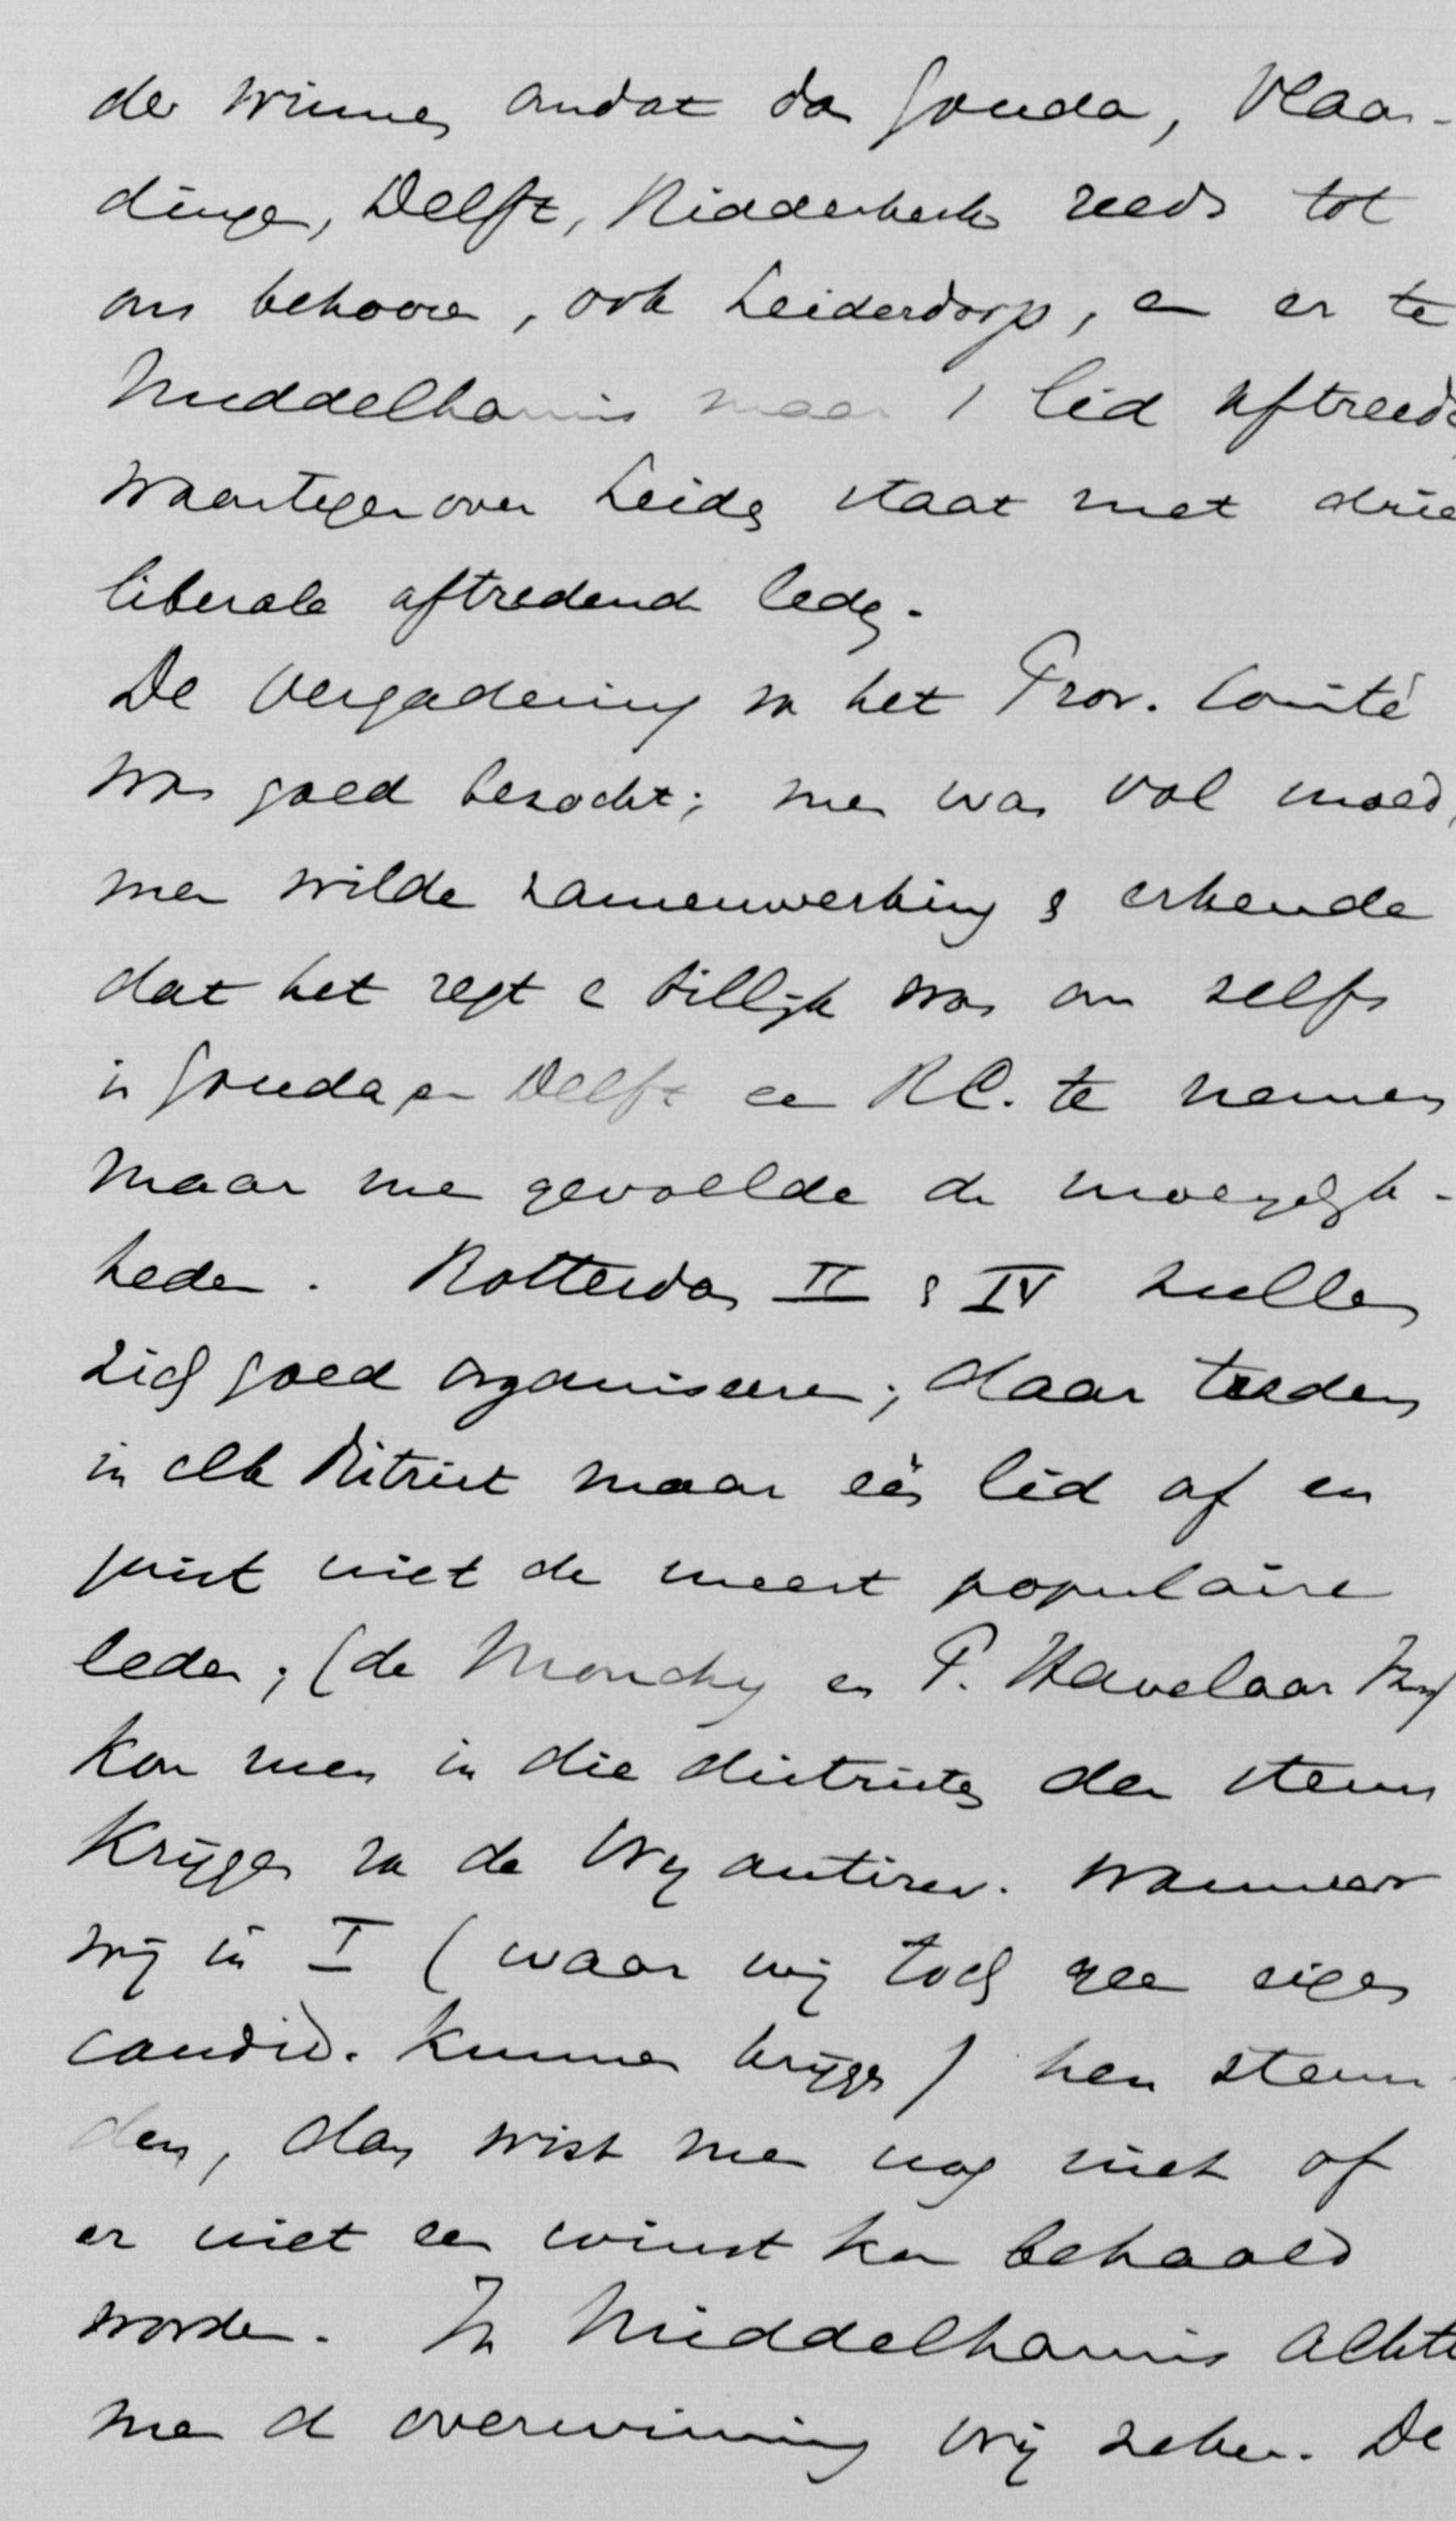 der winnen omdat dan Gouda, Vlaar-
dingen, Delft, Ridderkerk reeds tot
ons behooren, ook Leiderdorp, en er te
Middelharnis maar 1 lid aftreedt
waartegenover Leiden staat met drie
liberale aftredende leden.
De vergadering van het Prov. Comité
was goed bezocht; men was vol moed,
men wilde samenwerking & erkende
dat het regt en billijk was om zelfs
in Gouda en Delft een R.C. te nemen
maar men gevoelde de moeyelijk-
heden. Rotterdam II & IV zullen
zich goed organiseeren; daar treden
in elk district maar één lid af en
juist niet de meest populaire
leden; (de Monchy en P. Havelaar
kon men in die districten den steun
krijgen van de vrij antirev. wanneer
wij in I (waar wij toch geen eigen
candid. kunnen krijgen) hen steun-
den, dan wist men nog niet of
er niet een winst kon behaald
worden. In Middelharnis achtte
men de overwinning vrij zeker. De